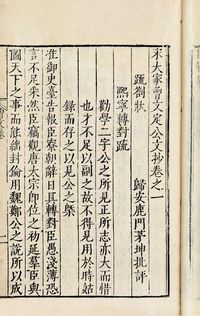 宋大家曾文定公文抄卷之一
歸安鹿門茅坤批評
疏劄狀
熙寧轉對疏
勸學二字公之所見正所志亦大而惜
也才不足以副之故不得見用於時姑
錄而存之以見公之槩
准御史臺告報臣寮朝辭日具轉對臣愚淺薄恐
言不足采然臣竊觀唐太宗即位之初延羣臣與
圖天下之事而能絀封倫用魏鄭公之說所以成